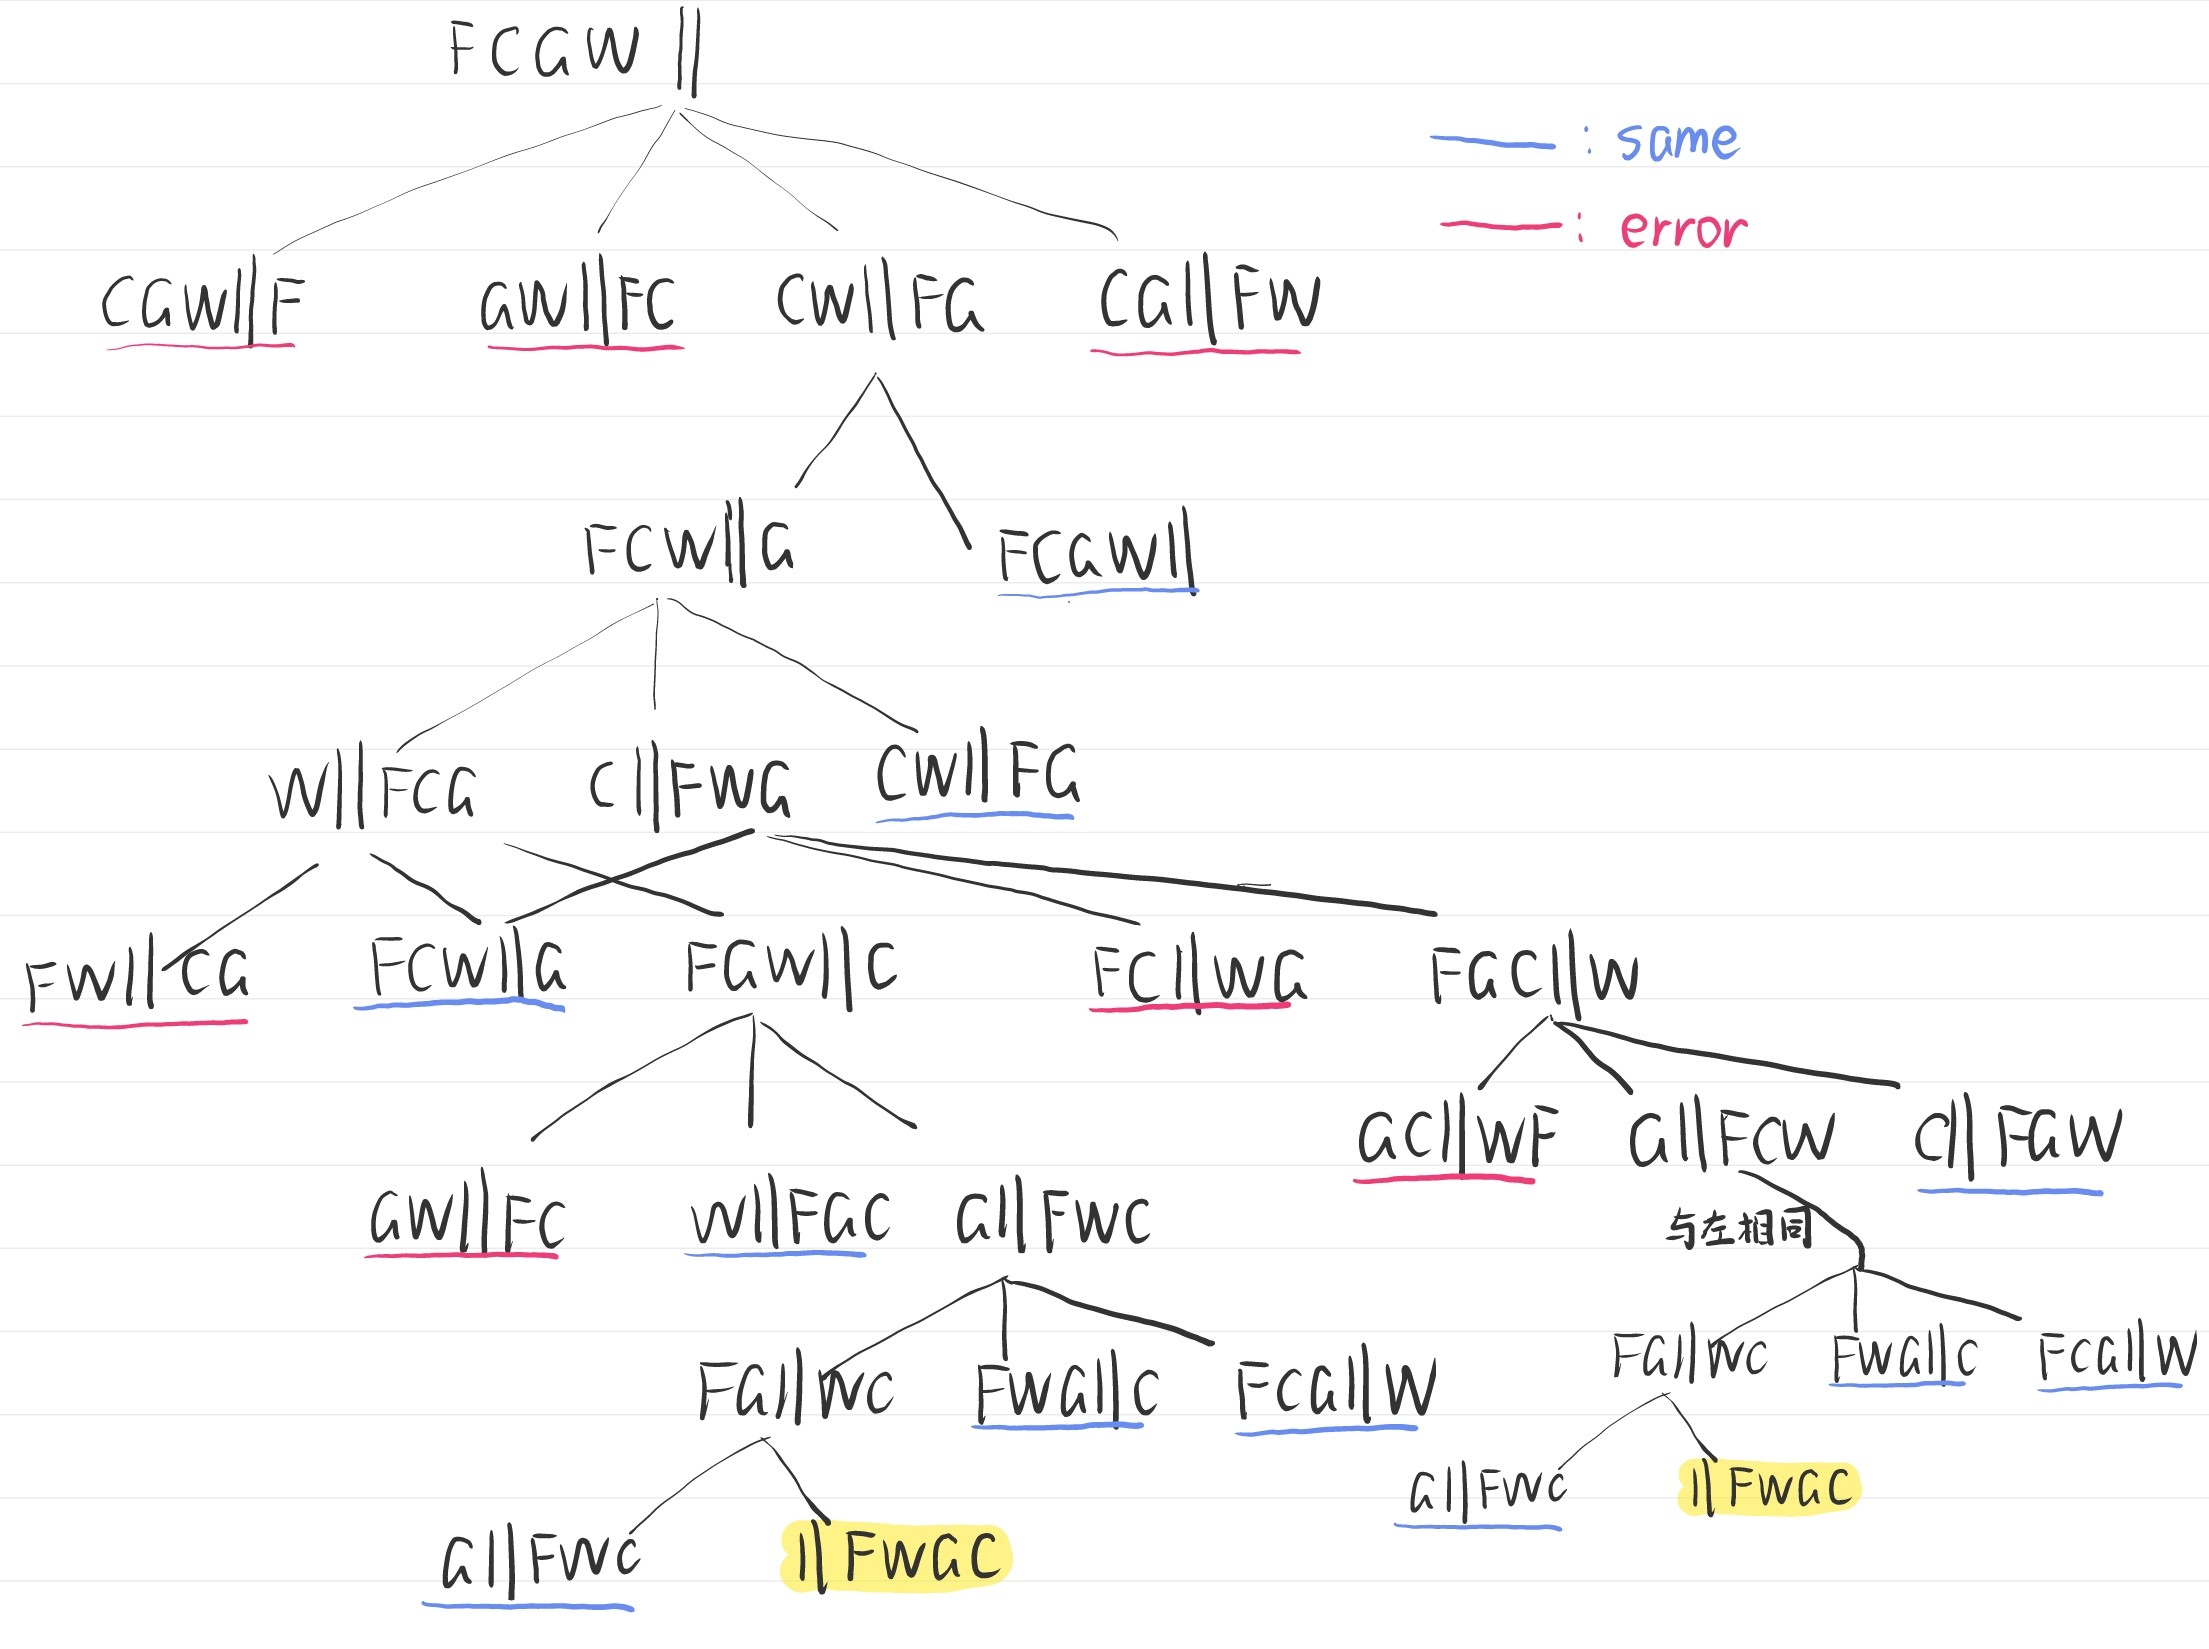 FCGW ||
: same
: error
CGW||F GW||FC CW||FG CG||FW
FCW||G FCGW||
W||FCG C||FWG CW||FG
FW||CG FCW||G FGW||C FC||WG FGC||W
GC||WF G||FCW C||FGW
GW||FC W||FGC G||FWC
与左相同
FG||WC FWG||C FCG||W
FG||WC FWG||C FCG||W
G||FWC ||FWGC
G||FWC ||FWGC